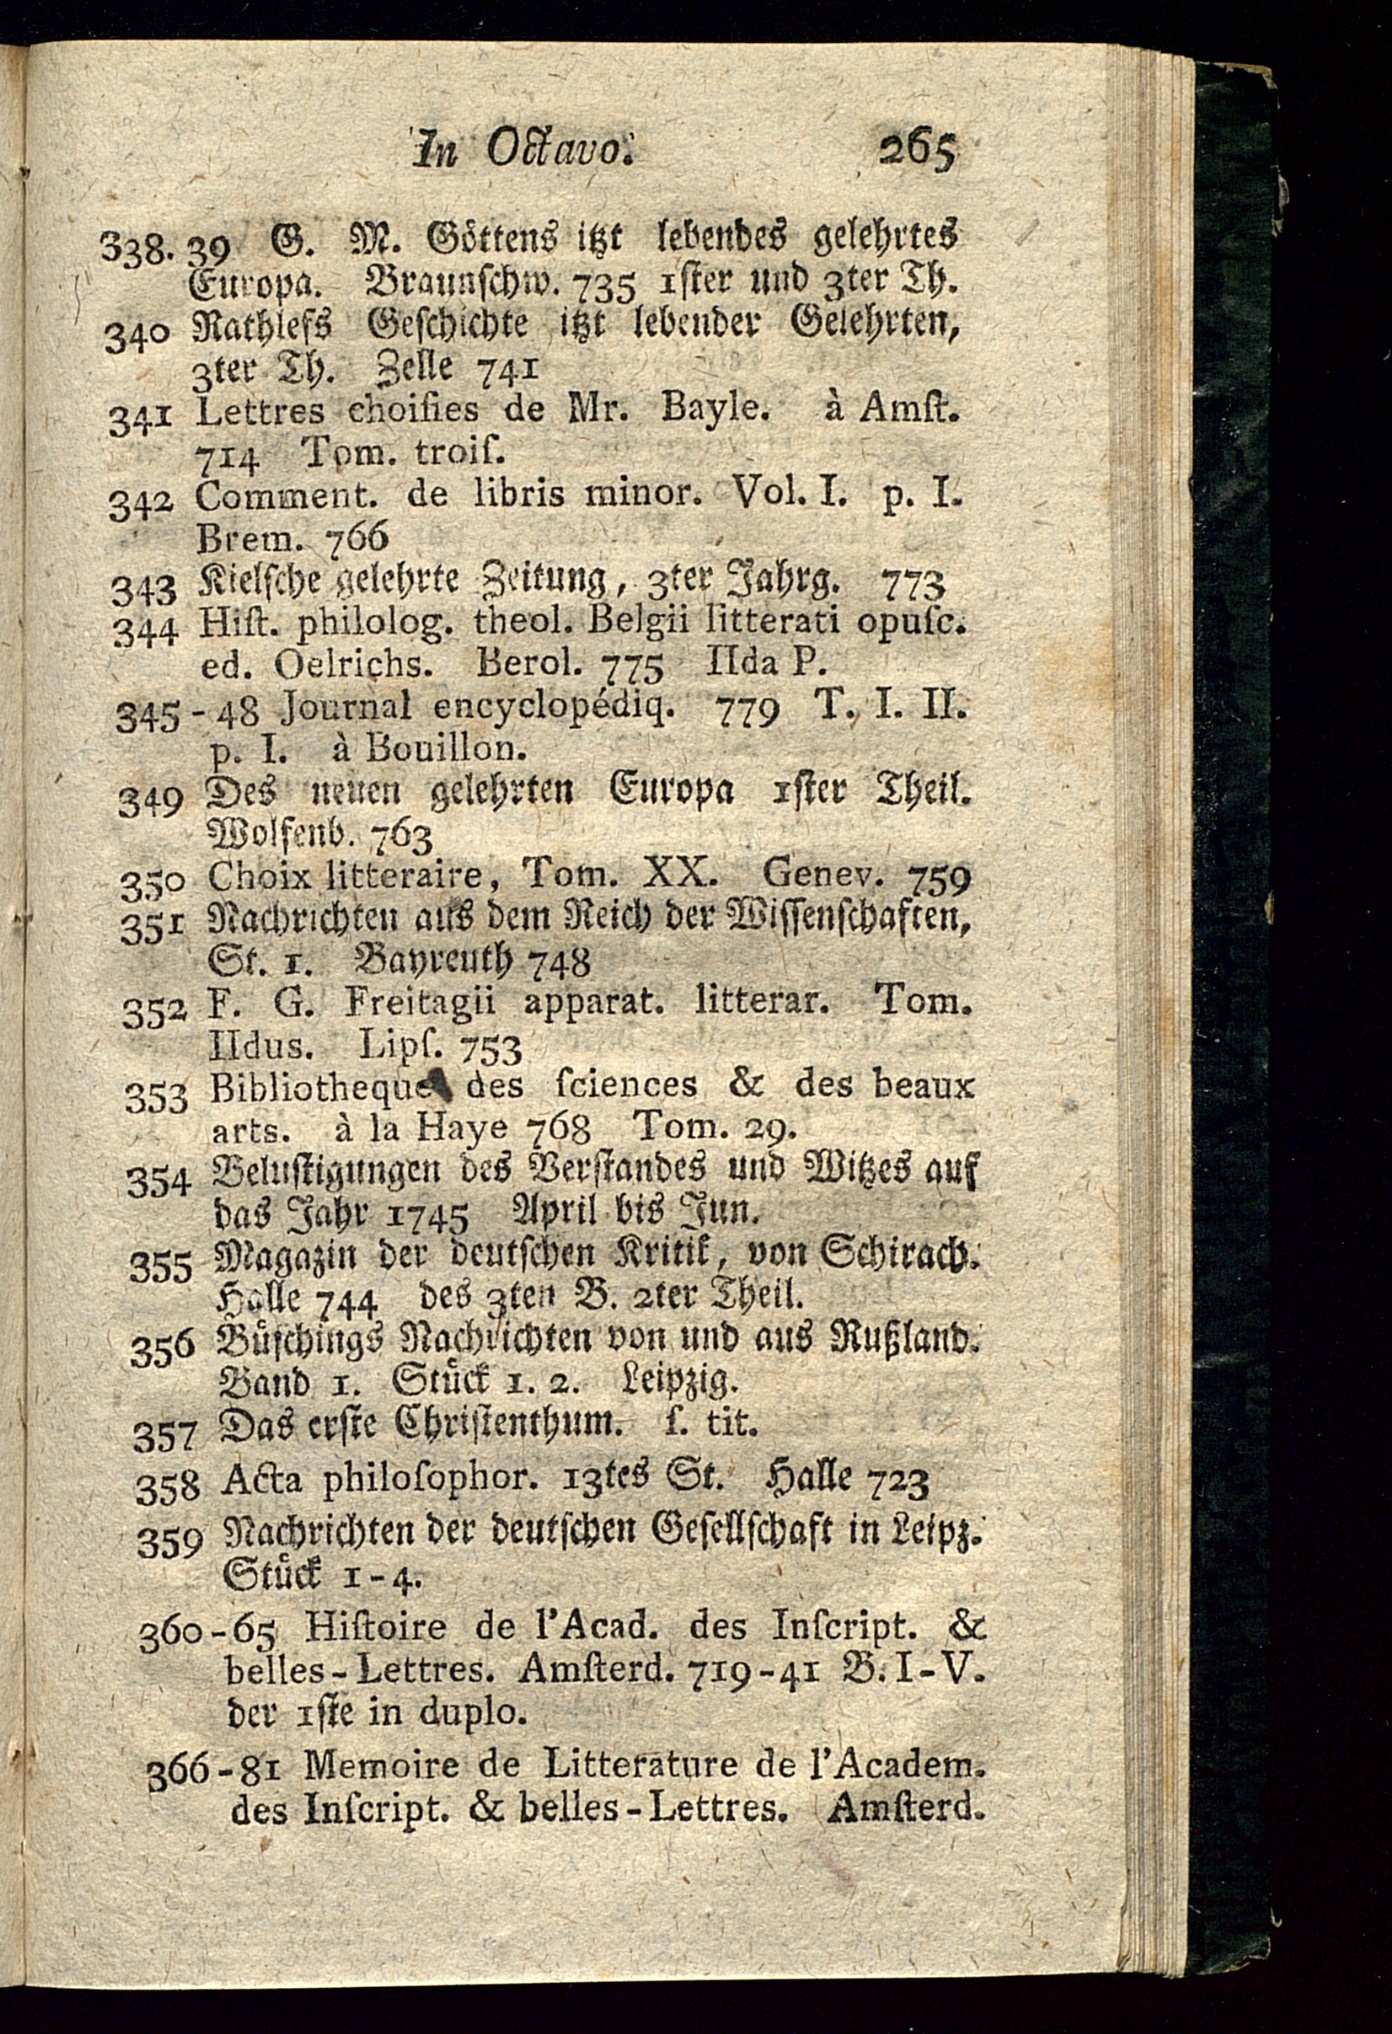 In Octavo. 265
338. 39 G. M. Göttens itzt lebendes gelehrtes
Europa. Braunſchw. 735 1ſter und 3ter Th.
340 Rathlefs Geſchichte itzt lebender Gelehrten,
3ter Th. Zelle 741
341 Lettres choiſies de Mr. Bayle. à Amſt.
714 Tom. troiſ.
342 Comment. de libris minor. Vol. I. p. I.
Brem. 766
343 Kielſche gelehrte Zeitung, 3ter Jahrg. 773
344 Hiſt. philolog. theol. Belgii litterati opuſc.
ed. Oelrichs. Berol. 775 IIda P.
345-48 Journal encyclopédiq. 779 T. I. II.
p. I. à Bouillon.
349 Des neuen gelehrten Europa 1ſter Theil.
Wolfenb. 763
350 Choix litteraire, Tom. XX. Genev. 759
351 Nachrichten aus dem Reich der Wiſſenſchaften,
St. 1. Bayreuth 748
352 F. G. Freitagii apparat. litterar. Tom.
IIdus. Lipſ. 753
353 Bibliotheque des ſciences & des beaux
arts. à la Haye 768 Tom. 29.
354 Beluſtigungen des Verſtandes und Witzes auf
das Jahr 1745 April bis Jun.
355 Magazin der deutſchen Kritik, von Schirach.
Halle 744 des 3ten B. 2ter Theil.
356 Büſchings Nachrichten von und aus Rußland.
Band 1. Stück 1. 2. Leipzig.
357 Das erſte Chriſtenthum. ſ. tit.
358 Acta philoſophor. 13tes St. Halle 723
359 Nachrichten der deutſchen Geſellſchaft in Leipz.
Stück 1-4.
360-65 Hiſtoire de l'Acad. des Inſcript. &
belles-Lettres. Amſterd. 719-41 B. I-V.
der 1ſte in duplo.
366-81 Memoire de Litterature de l'Academ.
des Inſcript. & belles-Lettres. Amſterd.